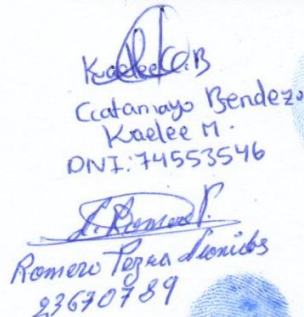 Kaelee C.B
Ccatamayo Bendezo
Kaelee M.
DNI: 74553546
Romero P.
Romero
23670789